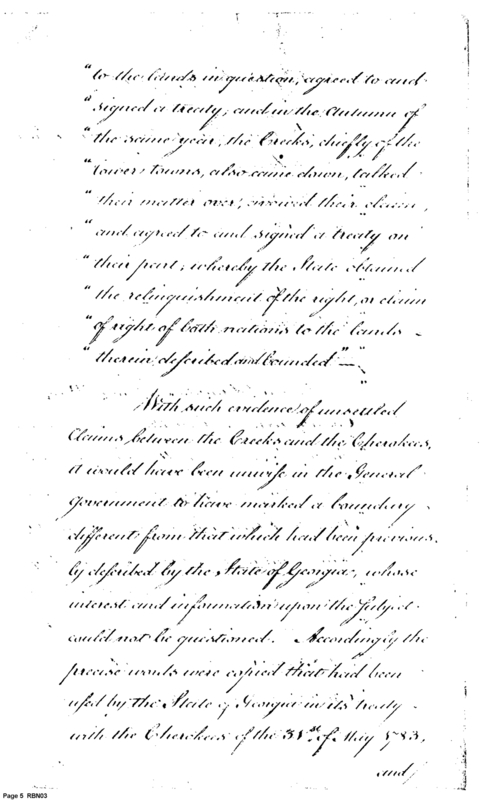 "to the lands in question, agreed to and
"signed a treaty; and in the Autumn of
"the same year, the Creeks, chiefly of the
"lower towns, also came down, talked
"their matter over, avowed their claim,
"and agreed to and signed a treaty on
"their part; whereby the State obtained
"the relinquishment of the right, or claim
"of right of both nations to the lands –
"therein described and bounded" —
With such evidence of unsettled
Claims between the Creeks and the Cherokees,
it would have been unwise in the General
government to have marked a boundary
different from that which had been previous-
ly described by the State of Georgia, whose
interest and information upon the subject
could not be questioned. Accordingly the
precise words were copied that had been
used by the State of Georgia in its treaty
with the Cherokees of the 31st of May 1783,
and
Page 5 RBN03